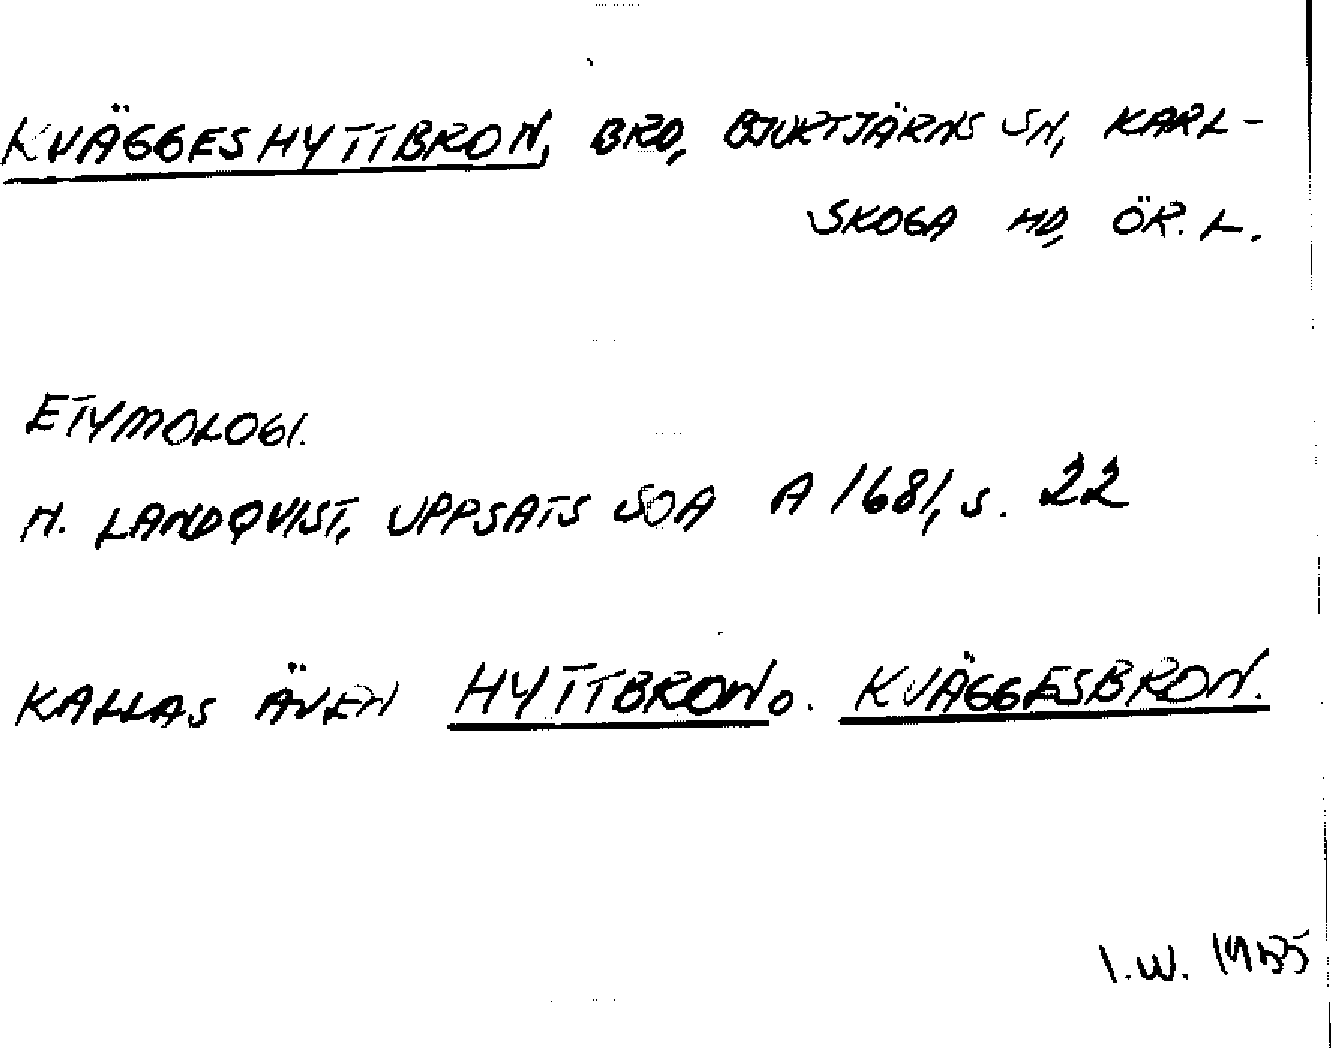 KVÄGGESHYTTBRON, BRO, BJURTJÄRNS SN, KARL-
SKOGA HD, ÖR. L.
ETYMOLOGI.
H. LANDQVIST, UPPSATS SOA A 1681, s. 22
KALLAS ÄVEN HYTTBRON o. KVÄGGESBRON.
I.W. 1955